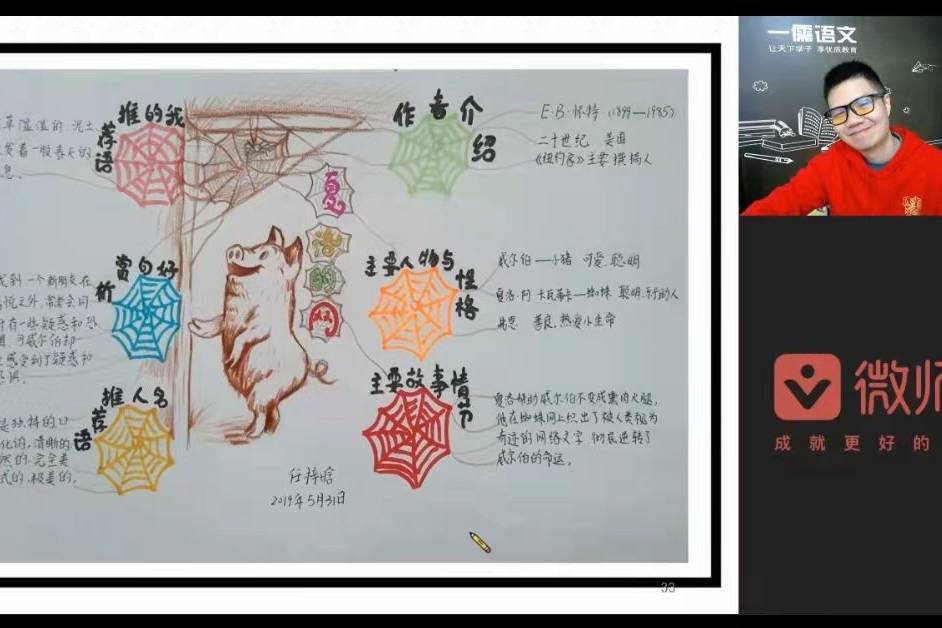 我的推荐语
草湿湿的泥土
息。
好句赏析
找到一个新朋友在
时有一些疑惑和恐
感受到了疑惑和
名人推荐语
是独特的
化的,清晰的
然的.完全美
式的,极美的。
夏洛的网
任梓晗
2019年5月31日
作者介绍
E·B·怀特 (1899—1985)
二十世纪 美国
《纽约客》主要撰稿人
主要人物与性格
威尔伯——小猪 可爱.聪明
夏洛·阿·卡瓦蒂卡——蜘蛛 聪明.
弗恩 善良,热爱小生命
主要故事情节
夏洛帮助威尔伯不变成熏肉火腿,
她在蜘蛛网上织出了被人类视为
奇迹的网络文字,彻底逆转了
威尔伯的命运。
33
一儒语文
让天下学子 享优质教育
微师
成就更好的